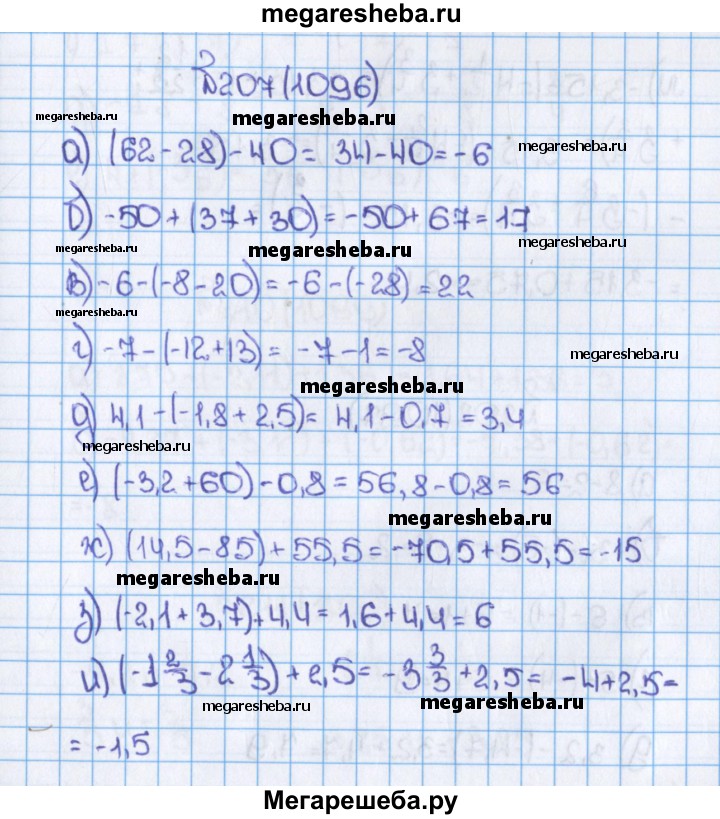 megaresheba.ru
№207(1096)
megaresheba.ru
megaresheba.ru
а) (62-28)-40= 34-40=-6
megaresheba.ru
б) -50+(37+30)=-50+67=17
megaresheba.ru
megaresheba.ru
в) -6-(-8-20)=-6-(-28)=22
megaresheba.ru
г) -7-(-12+13)= -7-1=-8
megaresheba.ru
megaresheba.ru
д) 4,1-(-1,8+2,5)= 4,1-0,7=3,4
megaresheba.ru
е) (-3,2+60)-0,8=56,8-0,8=56
megaresheba.ru
ж) (14,5-85)+55,5=-70,5+55,5=-15
megaresheba.ru
з) (-2,1+3,7)+4,4=1,6+4,4=6
и) (-1 2/3 - 2 1/3)+2,5= -3 3/3 +2,5= -4+2,5=
megaresheba.ru
megaresheba.ru
= -1,5
Мегарешеба.ру